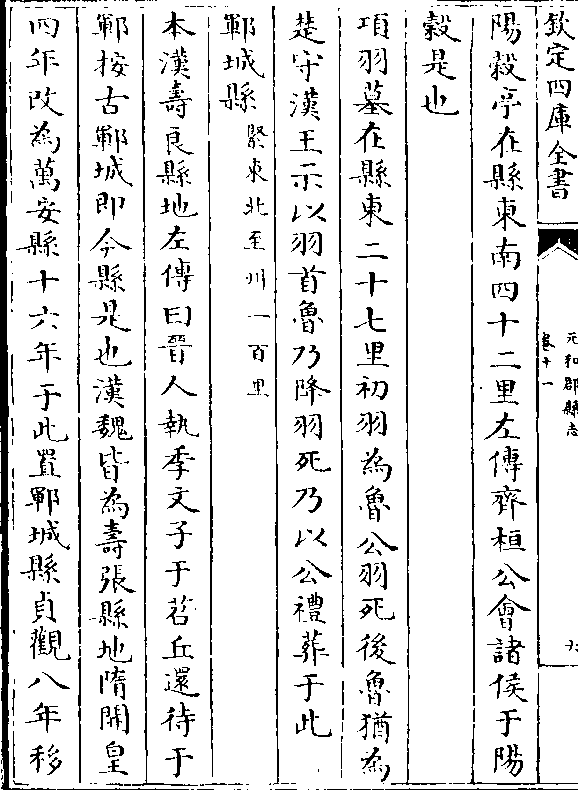 欽定四庫全書
元和郡縣志
卷十一
陽穀亭在縣東南四十二里左傳齊桓公會諸侯于陽
穀是也
項羽墓在縣東二十七里初羽為魯公羽死後魯猶為
楚守漢王示以羽首魯乃降羽死乃以公禮葬于此
鄆城縣 緊東北至州一百里
本漢壽良縣地左傳曰晉人執季文子于苕丘還待于
鄆按古鄆城即今縣是也漢魏皆為壽張縣地隋開皇
四年改為萬安縣十六年于此置鄆城縣貞觀八年移